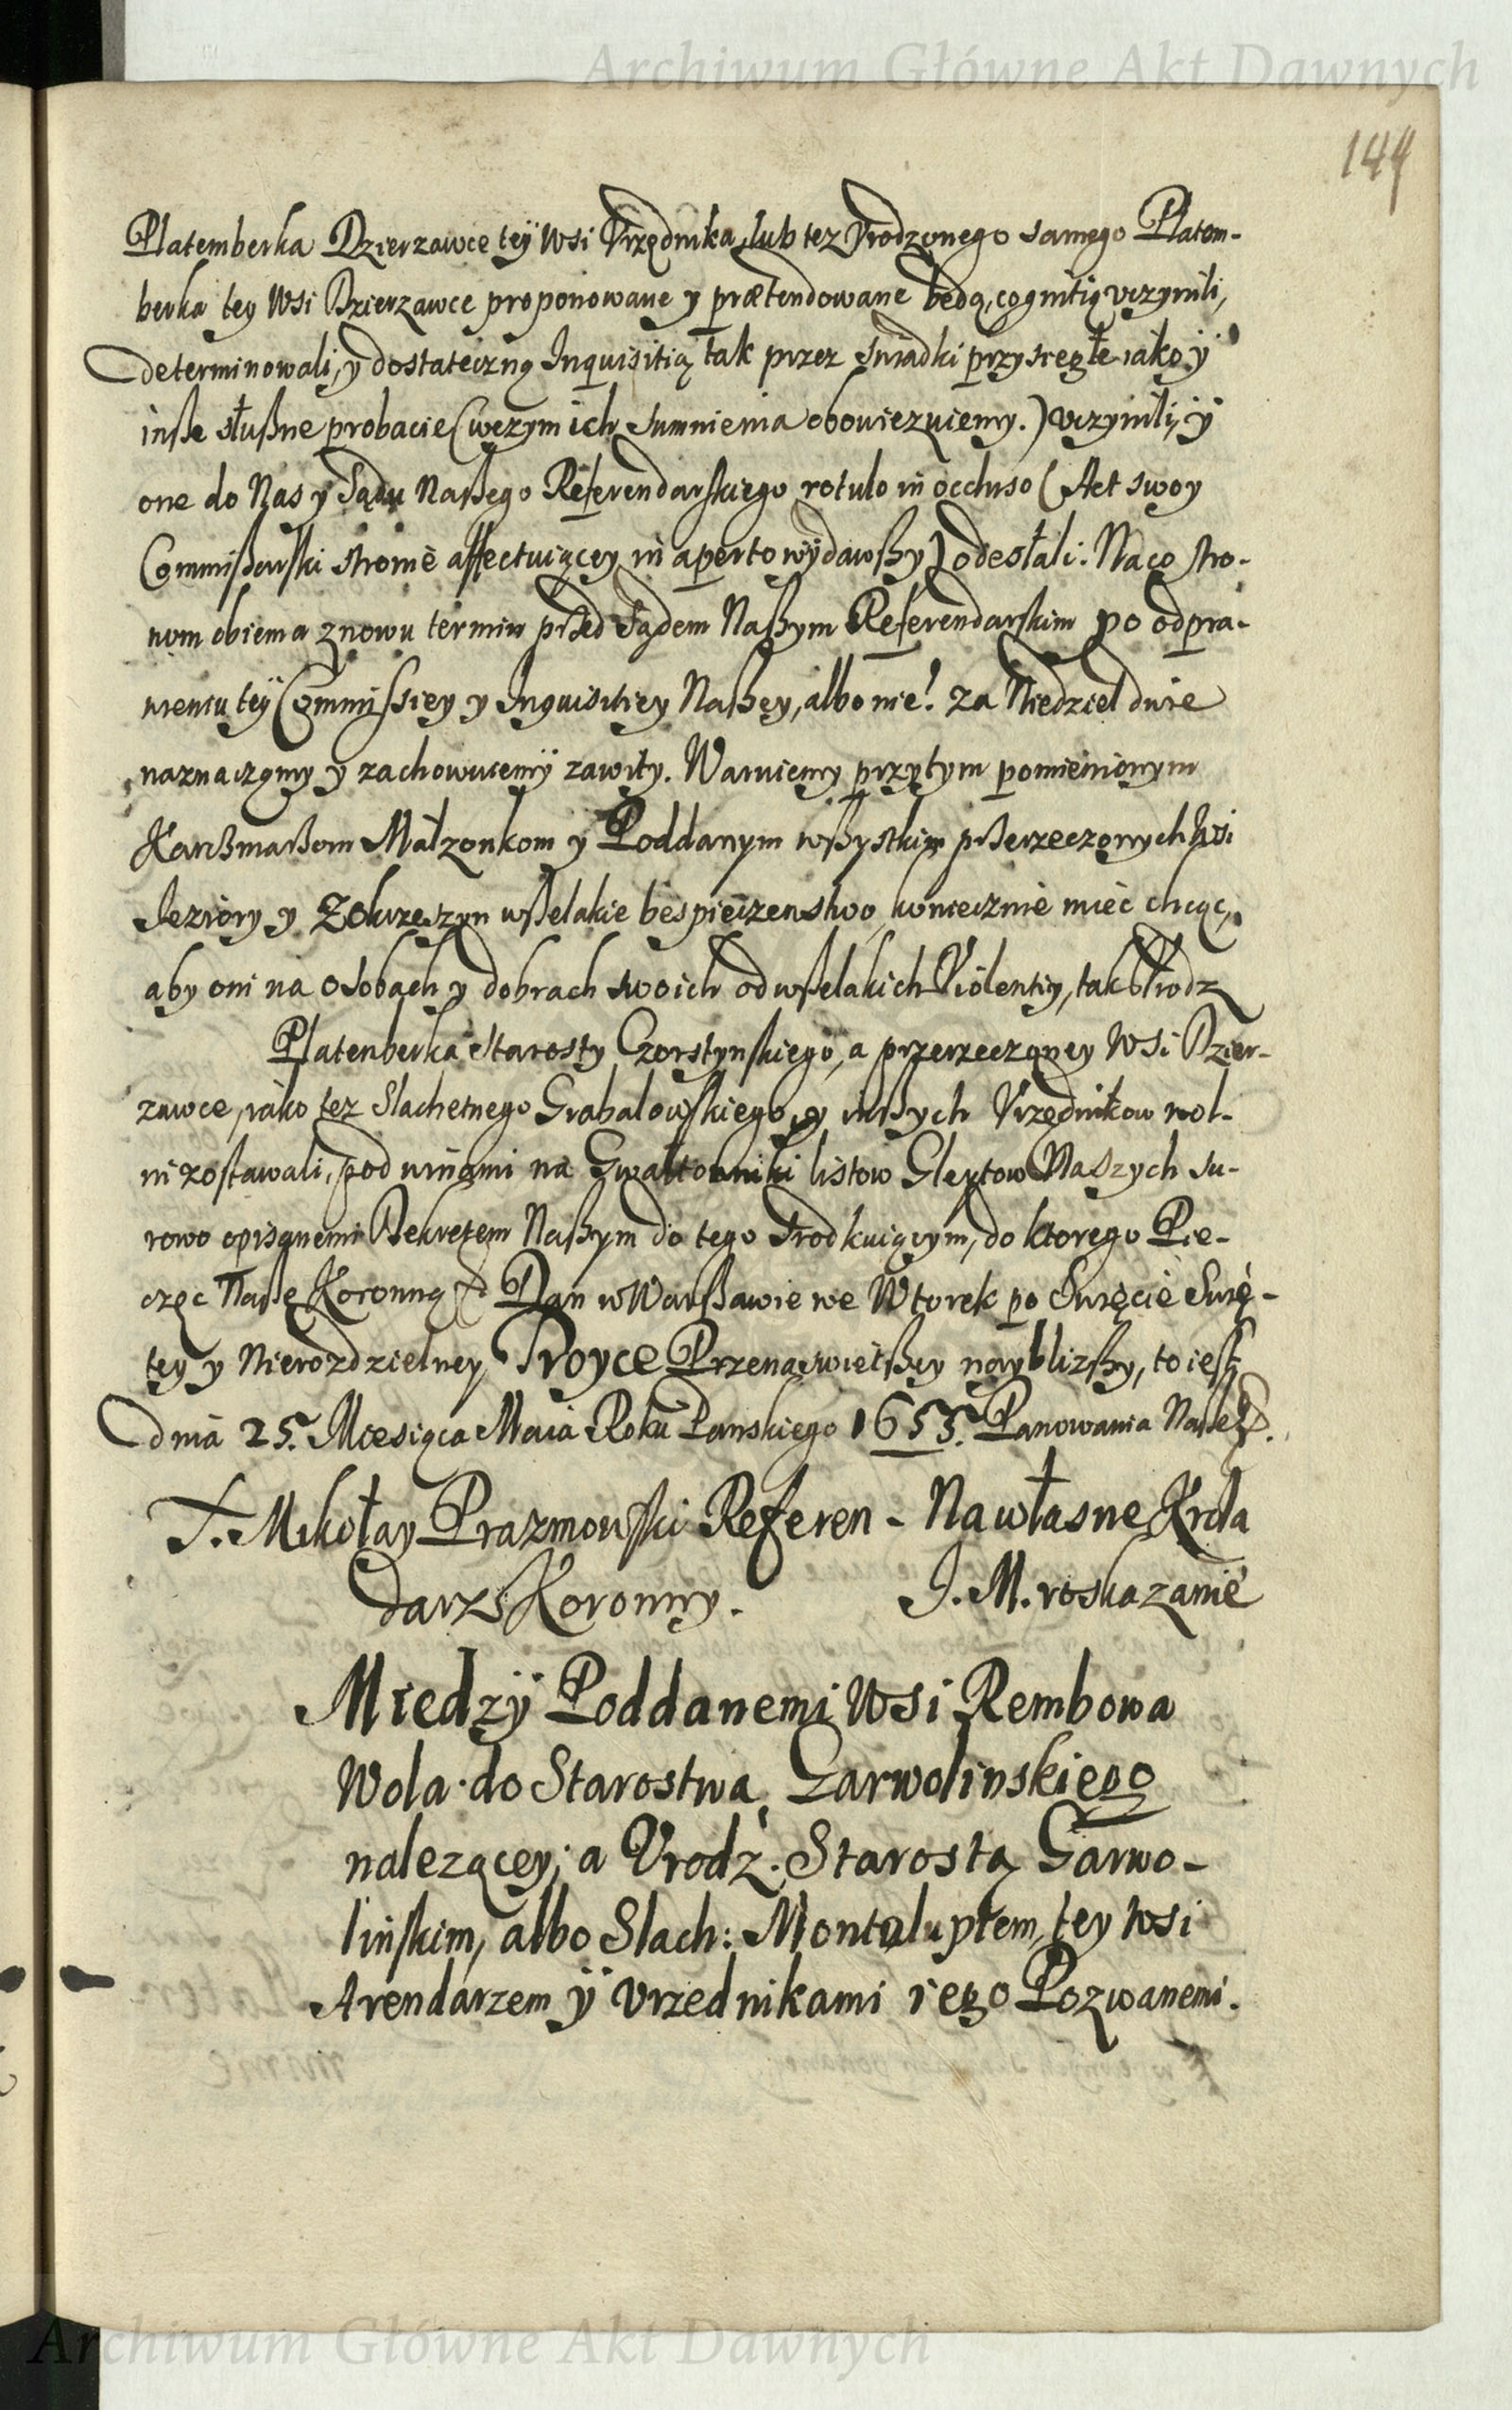 Archiwum Główne Akt Dawnych
144
Platemberka Dzierzawce teÿ wsi Vrzędnika, lub tez Vrodzonego samego Platem-
berka tey wsi Dzierzawce proponowane y prætendowane bedą, cognitią vczynili,
determinowali, y dostateczną Inquisitią tak przez swiadki przysięgłe iako ÿ
inße słußne probacie (wczym ich sumnienia obowięzuiemy.) vczynili, ÿ
one do Nas y Sądu Naßego Referendarskiego rotulo in occluso (Act swoy
Commißarski stronie affectuiącey in aperto wÿdawßy) odesłali. Na co stro-
nom obiema znowu termin przed Sądem Naßym Referendarskim po odpra-
wieniu teÿ Commissiey y Inquisitiey Naßey, albo nie! za Niedziel dwie
naznaczamy y zachowuiemÿ zawity. Waruiemy przytym pomienionym
Karßmaßom Małzonkom y Poddanym wßystkim przerzeczonych wsi
Jeziory y Zokrzeszyn wßelakie bespieczenstwo, koniecznie mieć chcąc,
aby oni na osobach y dobrach swoich od wßelakich Violentiy, tak Vrodz
Platenberka Starosty Czorstynskiego, a przerzeczoney wsi Dzier-
zawce, iako tez Slachetnego Grabalowskiego, y inßych Vrzędnikow wol-
ni zostawali, pod winami na Gwałtowniki listow Gleytow Naszych su-
rowo opisanemi Dekretem Naßym do tego srodkuiącym, do ktorego Pie-
częc Naßę Koronną Dan w Warßawie we Wtorek po Swięcie Swię-
tey y Nierozdzielney Troyce Przenaswietßey nayblizßy, to iest
dnia 25. Miesiąca Maia Roku Panskiego 1655. Panowania Naße
X. Mikołay Prazmowski Referen- Na własne Krola
darz Koronny. J. M. roskazanie
Miedzÿ Poddanemi wsi Rembowa
Wola do Starostwa Garwolinskiego
nalezącey; a Vrodz. Starostą Garwo-
linskim, albo Slach: Montalupłem, tey wsi
Arendarzem ÿ vrzednikami iego Pozwanemi.
Archiwum Główne Akt Dawnych